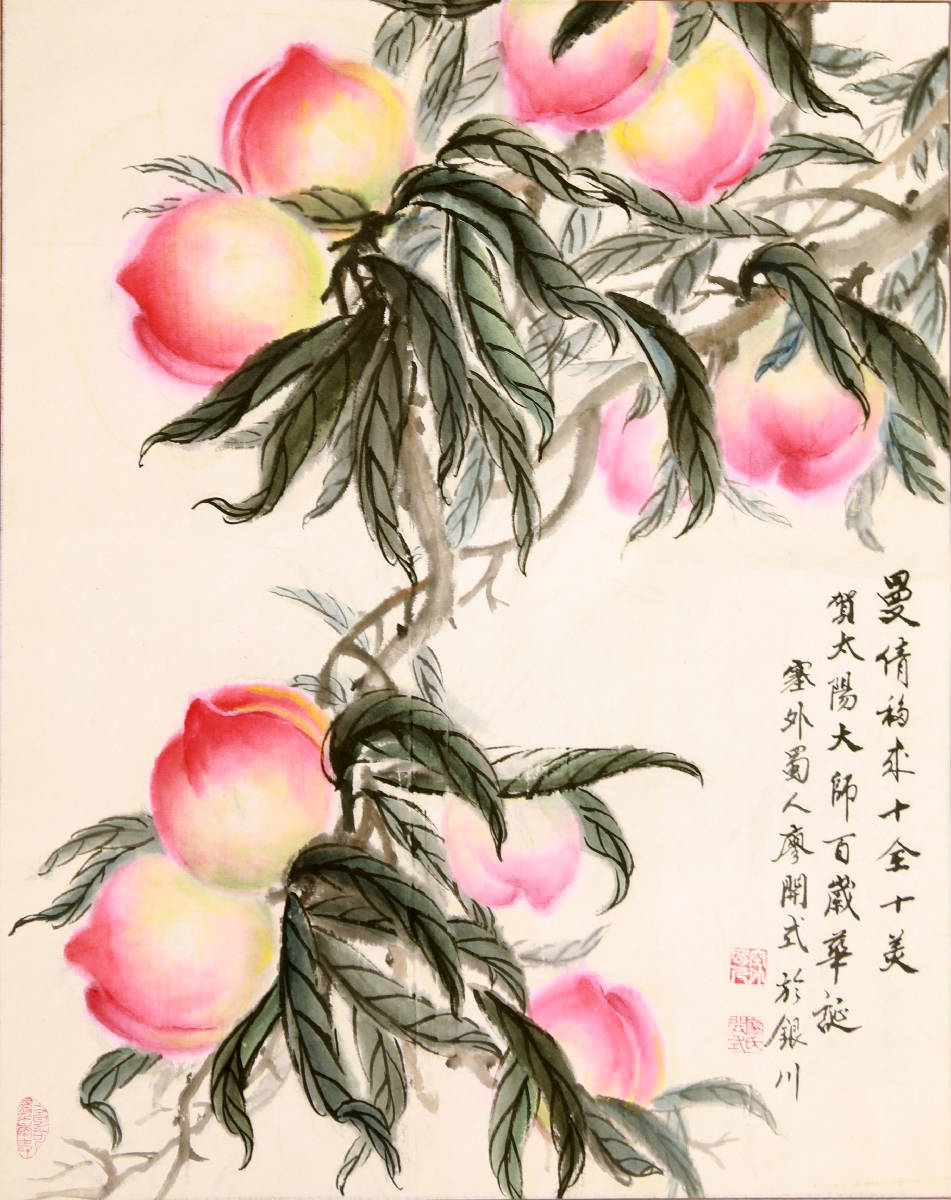 曼倩移来十全十美
賀太陽大師百歲華誕
塞外蜀人廖開式於銀川